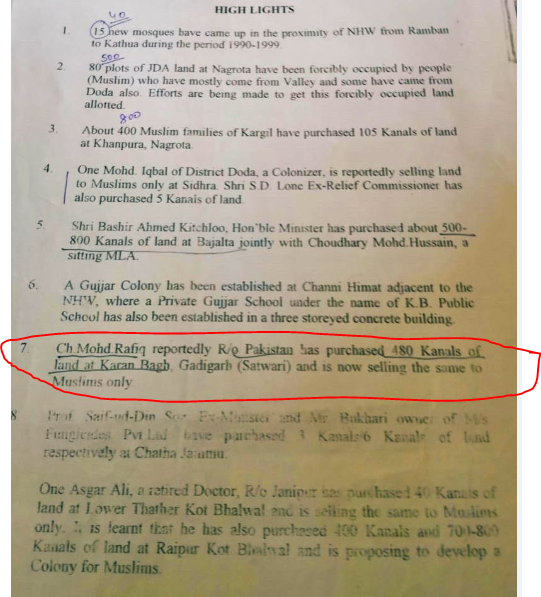 HIGH LIGHTS
40
1. 15 new mosques have came up in the proximity of NHW from Ramban
to Kathua during the period 1990-1999.
500
2. 80 plots of JDA land at Nagrota have been forcibly occupied by people
(Muslim) who have mostly come from Valley and some have came from
Doda also. Efforts are being made to get this forcibly occupied land
allotted.
800
3. About 400 Muslim families of Kargil have purchased 105 Kanals of land
at Khanpura, Nagrota.
4. One Mohd. Iqbal of District Doda, a Colonizer, is reportedly selling land
to Muslims only at Sidhra. Shri S.D. Lone Ex-Relief Commissioner has
also purchased 5 Kanals of land.
5. Shri Bashir Ahmed Kitchloo, Hon'ble Minister has purchased about 500-
800 Kanals of land at Bajalta jointly with Choudhary Mohd.Hussain, a
sitting MLA.
6. A Gujjar Colony has been established at Channi Himat adjacent to the
NHW, where a Private Gujjar School under the name of K.B. Public
School has also been established in a three storeyed concrete building.
7. Ch.Mohd.Rafiq reportedly R/o Pakistan has purchased 480 Kanals of
land at Karan Bagh, Gadigarh (Satwari) and is now selling the same to
Muslims only
8 Prof Saif-ud-Din Soz Ex-Minister and Mr. Bukhari owner of M/s
Fungicides Pvt Ltd have purchased 3 Kanals/6 Kanals of land
respectively at Chatha Jammu.
One Asgar Ali, a retired Doctor, R/o Janipur has purchased 40 Kanals of
land at Lower Thather Kot Bhalwal and is selling the same to Muslims
only. It is learnt that he has also purchased 400 Kanals and 700-800
Kanals of land at Raipur Kot Bhalwal and is proposing to develop a
Colony for Muslims.